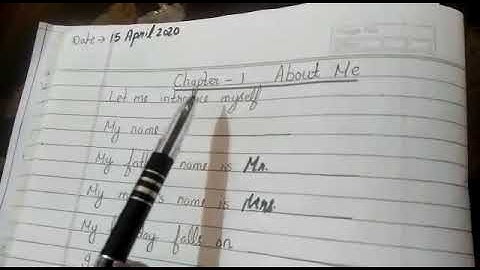 Date → 15 April 2020
Chapter - 1 About Me
Let me introduce myself
My name
My name is Mr.
My name is Mrs.
My falls on